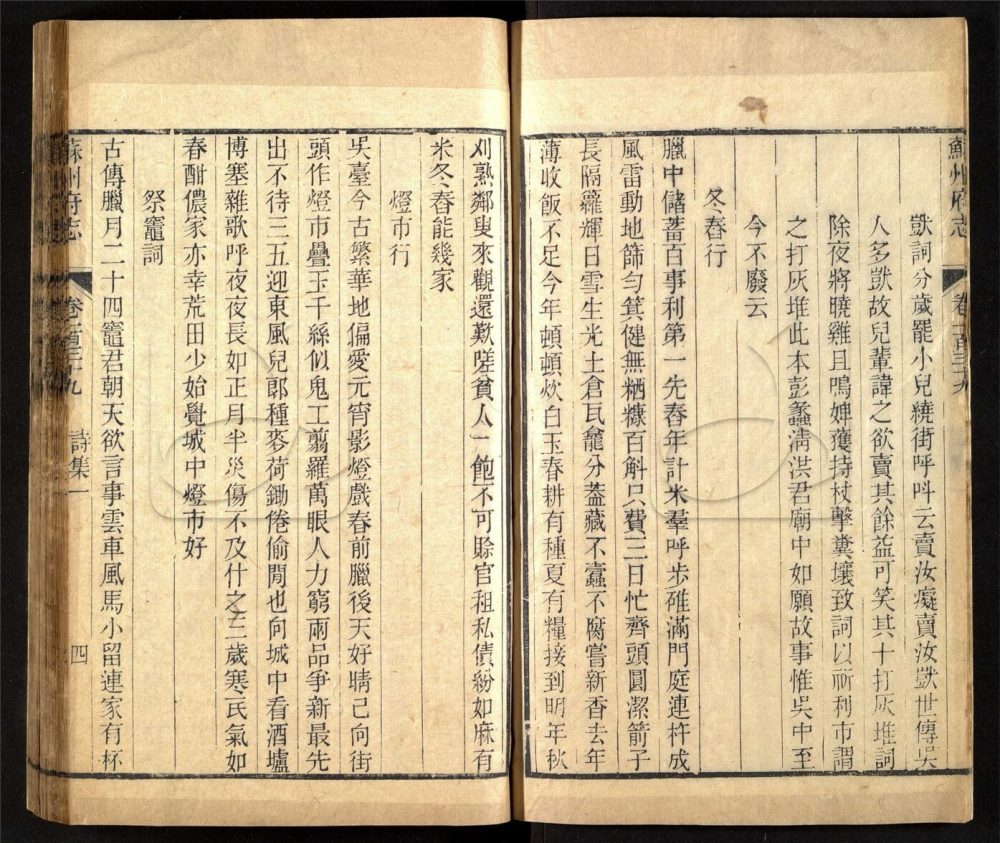 蘇州府志 卷一百三十九
獃詞分歲罷小兒繞街呼呌云賣汝癡賣汝獃世傳吳
人多獃故兒輩諱之欲賣其餘益可笑其十打灰堆詞
除夜將曉雞且鳴婢獲持杖擊糞壤致詞以祈利市謂
之打灰堆此本彭蠡淸洪君廟中如願故事惟吳中至
今不廢云
冬舂行
臘中儲蓄百事利第一先舂年計米羣呼步碓滿門庭連杵成
風雷動地篩勻箕健無粞糠百斛只費三日忙齊頭圓潔箭子
長隔籮輝日雪生光土倉瓦龕分葢藏不蠧不腐嘗新香去年
薄收飯不足今年頓頓炊白玉春耕有種夏有糧接到明年秋
刈熟鄰叟來觀還歎嗟貧人一飽不可賒官租私債紛如麻有
米冬舂能幾家
燈市行
吳臺今古繁華地偏愛元宵影燈戲春前臘後天好晴已向街
頭作燈市疊玉千絲似鬼工翦羅萬眼人力窮兩品爭新最先
出不待三五迎東風兒郞種麥荷鋤倦偷閒也向城中看酒壚
博塞雜歌呼夜夜長如正月半災傷不及什之三歲寒民氣如
春酣儂家亦幸荒田少始覺城中燈市好
祭竈詞
古傳臘月二十四竈君朝天欲言事雲車風馬小留連家有杯
蘇州府志 卷一百三十九 詩集一 四